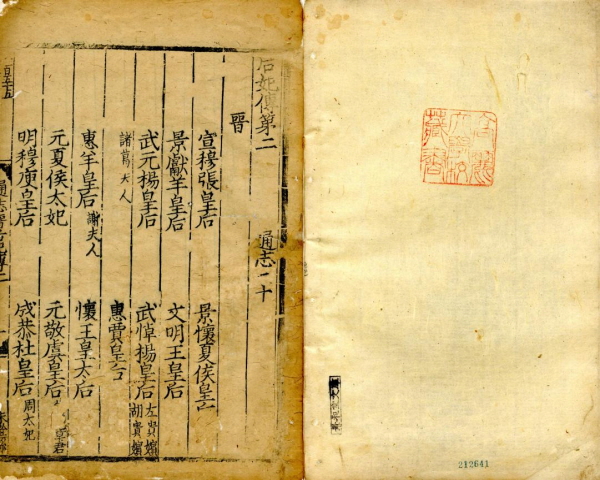 后妃傳第二 通志二十
晉
宣穆張皇后 景懷夏侯皇后
景獻羊皇后 文明王皇后
武元楊皇后 武悼楊皇后 左貴嬪 胡貴嬪
諸葛夫人 惠賈皇后
惠羊皇后 謝夫人 懷王皇太后
元夏侯太妃 元敬虞皇后
明穆庾皇后 成恭杜皇后 周太妃
212641